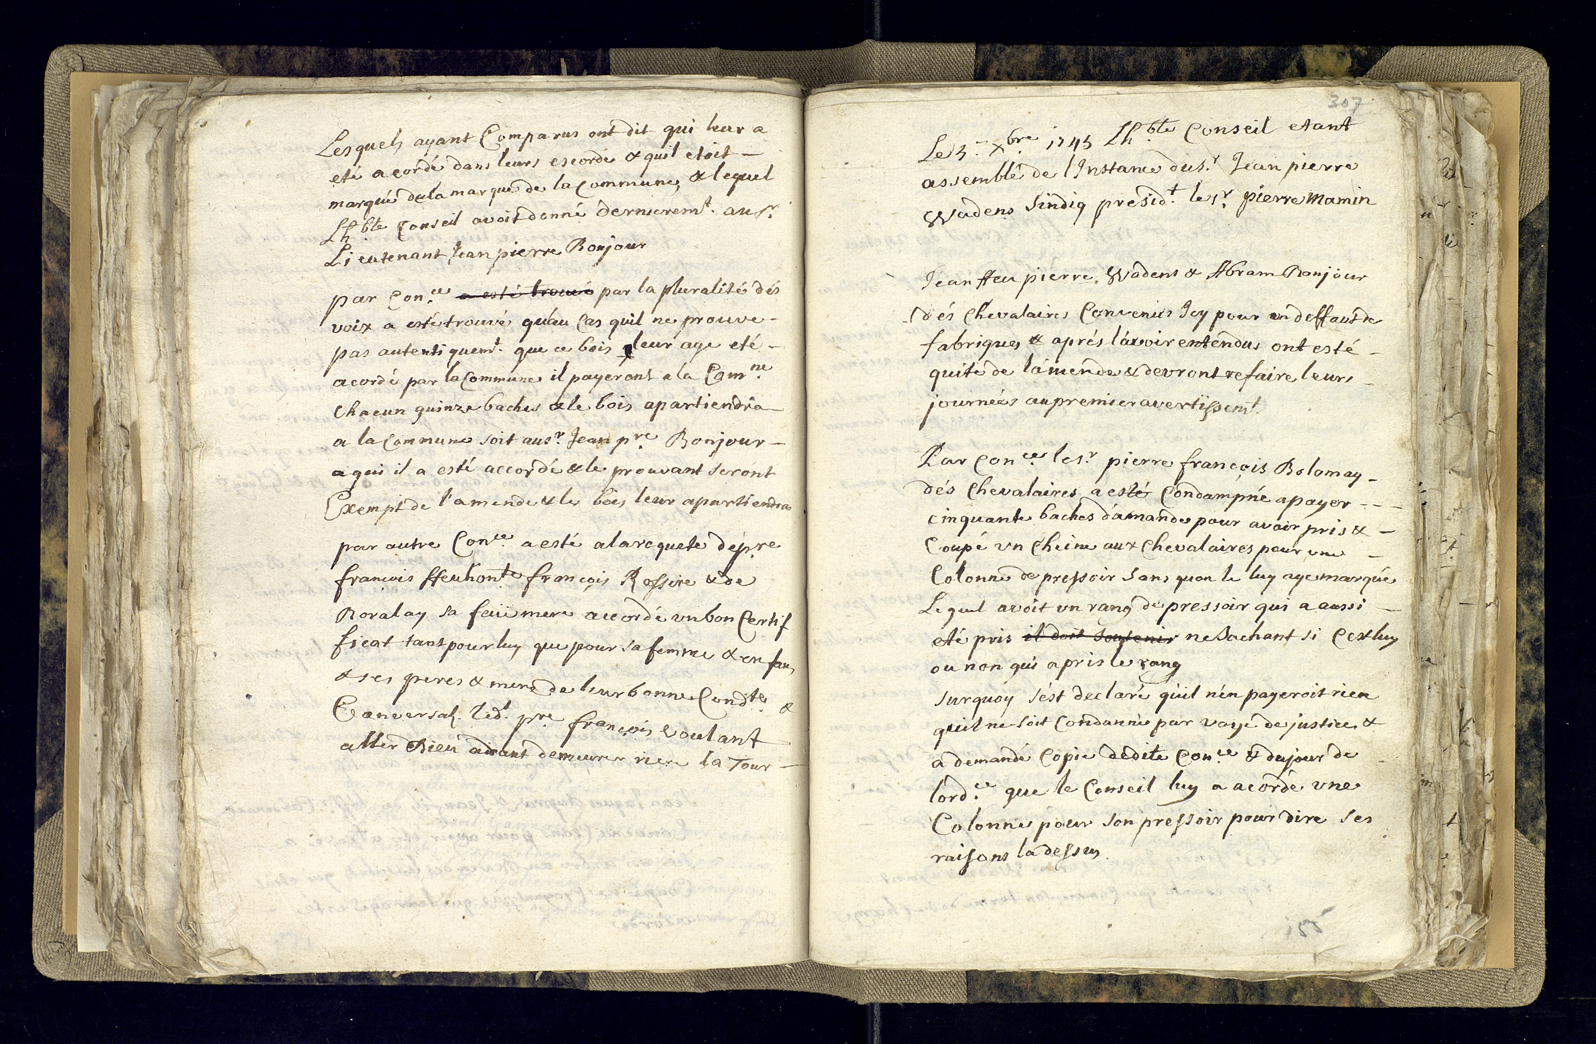 Lesquels ayant Comparus ont dit qui leur a
eté acordé dans leurs escorde & quil etoit –
marqué de la marque de la Commune, & lequel
Lh.ble Conseil avoit donné dernierem.t au Sr.
Lieutenant Jean pierre Bonjour
par Con.ce a esté trouvé par la pluralité dés
voix a esté trouvé quau Cas quil ne prouve –
pas autentiquem.t que ce bois leur aye eté –
acordé par la Commune il payeront a la Com.ne
Chacun quinze baches & le bois apartiendra –
a la Commune soit au sr. Jean p.re Bonjour –
a qui il a esté accordé & le prouvant seront
Exempt de l'amende & le bois leur apartiendra
par autre Con.ce a esté a la requete de p.re
françois ffeu hon.te françois Rossire & de
sa feüe mere accordé un bon Certif
ficat tant pour luy que pour sa femme & enfans
& ses peres & mere de leur bonne Cond.te &
Conversa.n led.t p.re françois voulant
aller demeurer riere la Tour –
307
Le 3.e Xbre 1745 Lh.ble Conseil etant
assemblé de l'Instance du s.r Jean pierre
Wadens Sindiq présid.t le s.r pierre Mamin
Jean ffeu pierre Wadens & Abram Bonjour
dés Chevalaires Convenus Icy pour un deffaut de
fabriques & aprés l'avoir entendus ont esté –
quité de l'amende & devront refaire leurs
journées au premier avertissem.t
Par Con.ce le s.r pierre françois Bolomay –
dés Chevalaires a esté Condampné a payer – – –
cinquante baches d'amande pour avoir pris & –
Coupé un Cheine aux Chevalaires pour une –
Colonne de pressoir sans quon le luy aye marqué
Lequel avoit un rang de pressoir qui a aussi –
eté pris il doit soutenir ne sachant si Cest luy
ou non qui a pris le rang
surquoy s'est declaré qu'il n'en payeroit rien
quil ne soit Condanné par voye de justice &
a demandé Copie de dite Con.ce & du jour de
lord.ce que le Conseil luy a acordé une
Colonne pour son pressoir pour dire ses
raisons la dessus.